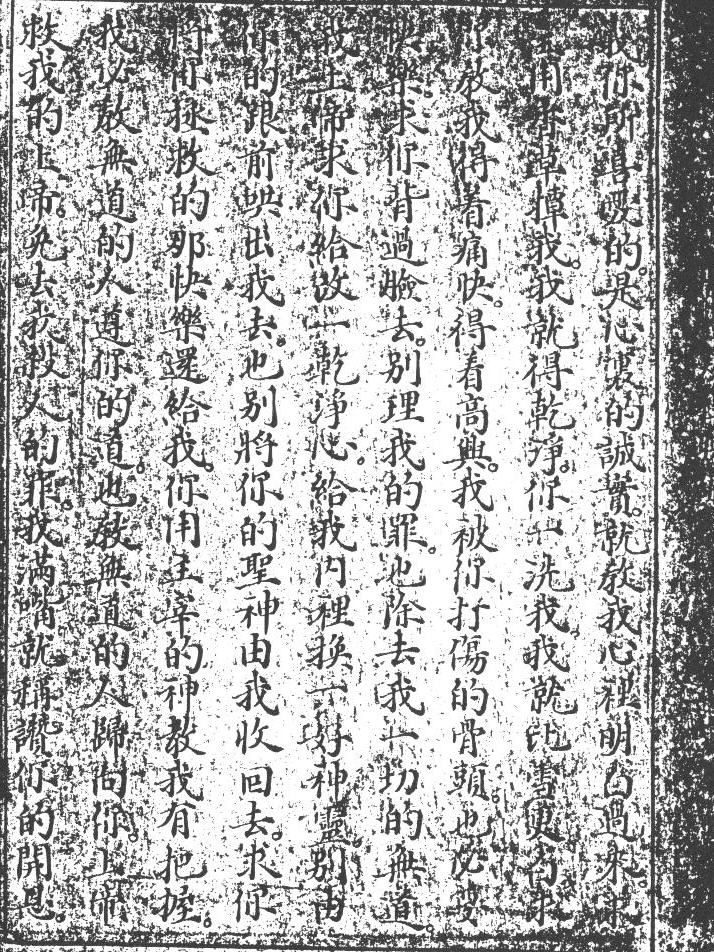 你所喜愛的。是心裏的誠實。就教我心裡明白過來。求
用香草撣我。我就得乾淨。你一洗我。我就比雪更白。求
你教我得着痛快。得着高興。我被你打傷的骨頭。也必要
快樂。求你背過臉去。别理我的罪。也除去我一切的無道。
我上帝求你給改一乾淨心。給我内裡換一好神靈。别由
你的跟前哄出我去。也别將你的聖神由我收回去。求你
將你拯救的那快樂還給我。你用主宰的神教我有把握。
我必教無道的人遵你的道。也教無道的人歸向你。上帝
救我的上帝。免去我殺人的罪。我滿嘴就稱讚你的開恩。